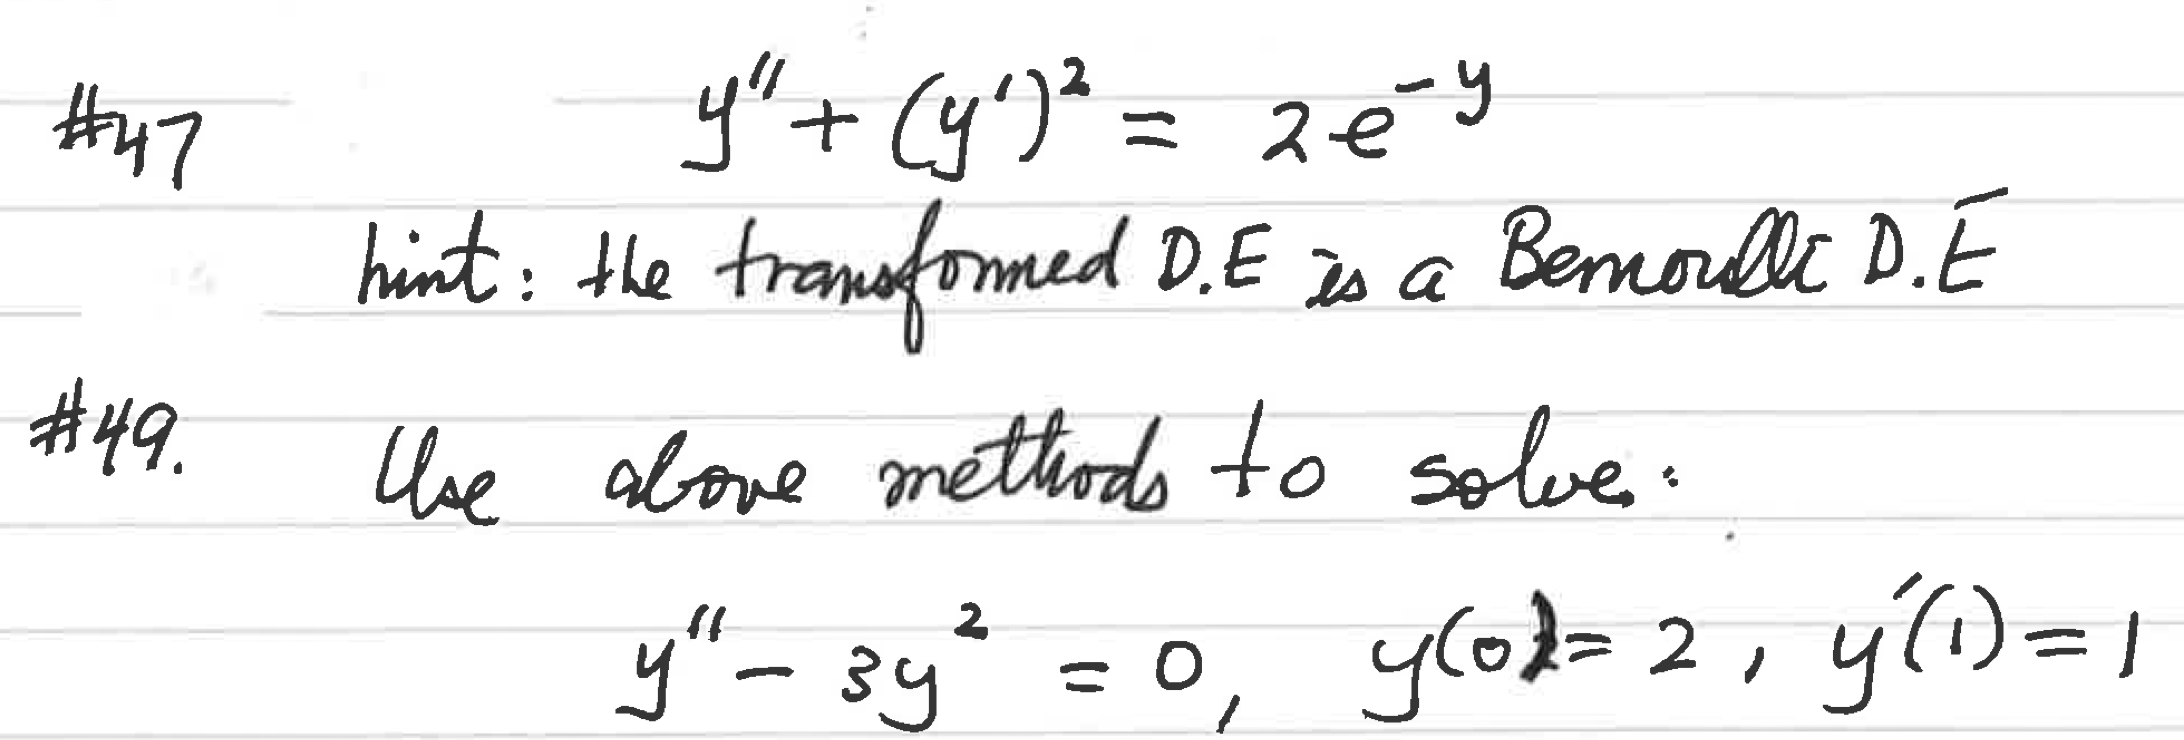 #47 y'' + (y')² = 2e^{-y}
hint: the transformed D.E is a Bernoulli D.E
#49. Use above methods to solve:
y'' - 3y² = 0, y(0) = 2, y'(1) = 1